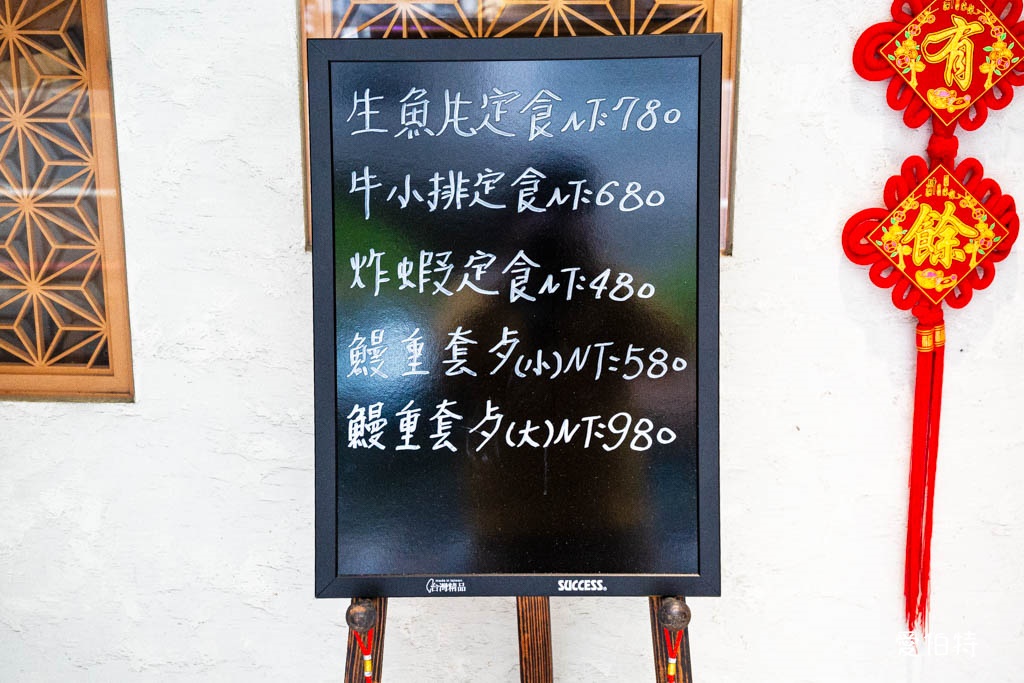 生魚片定食NT:780
牛小排定食NT:680
炸蝦定食NT:480
鰻重套夕(小)NT:580
鰻重套夕(大)NT:980
made in taiwan
台灣精品
SUCCESS®
有
餘
愛伯特